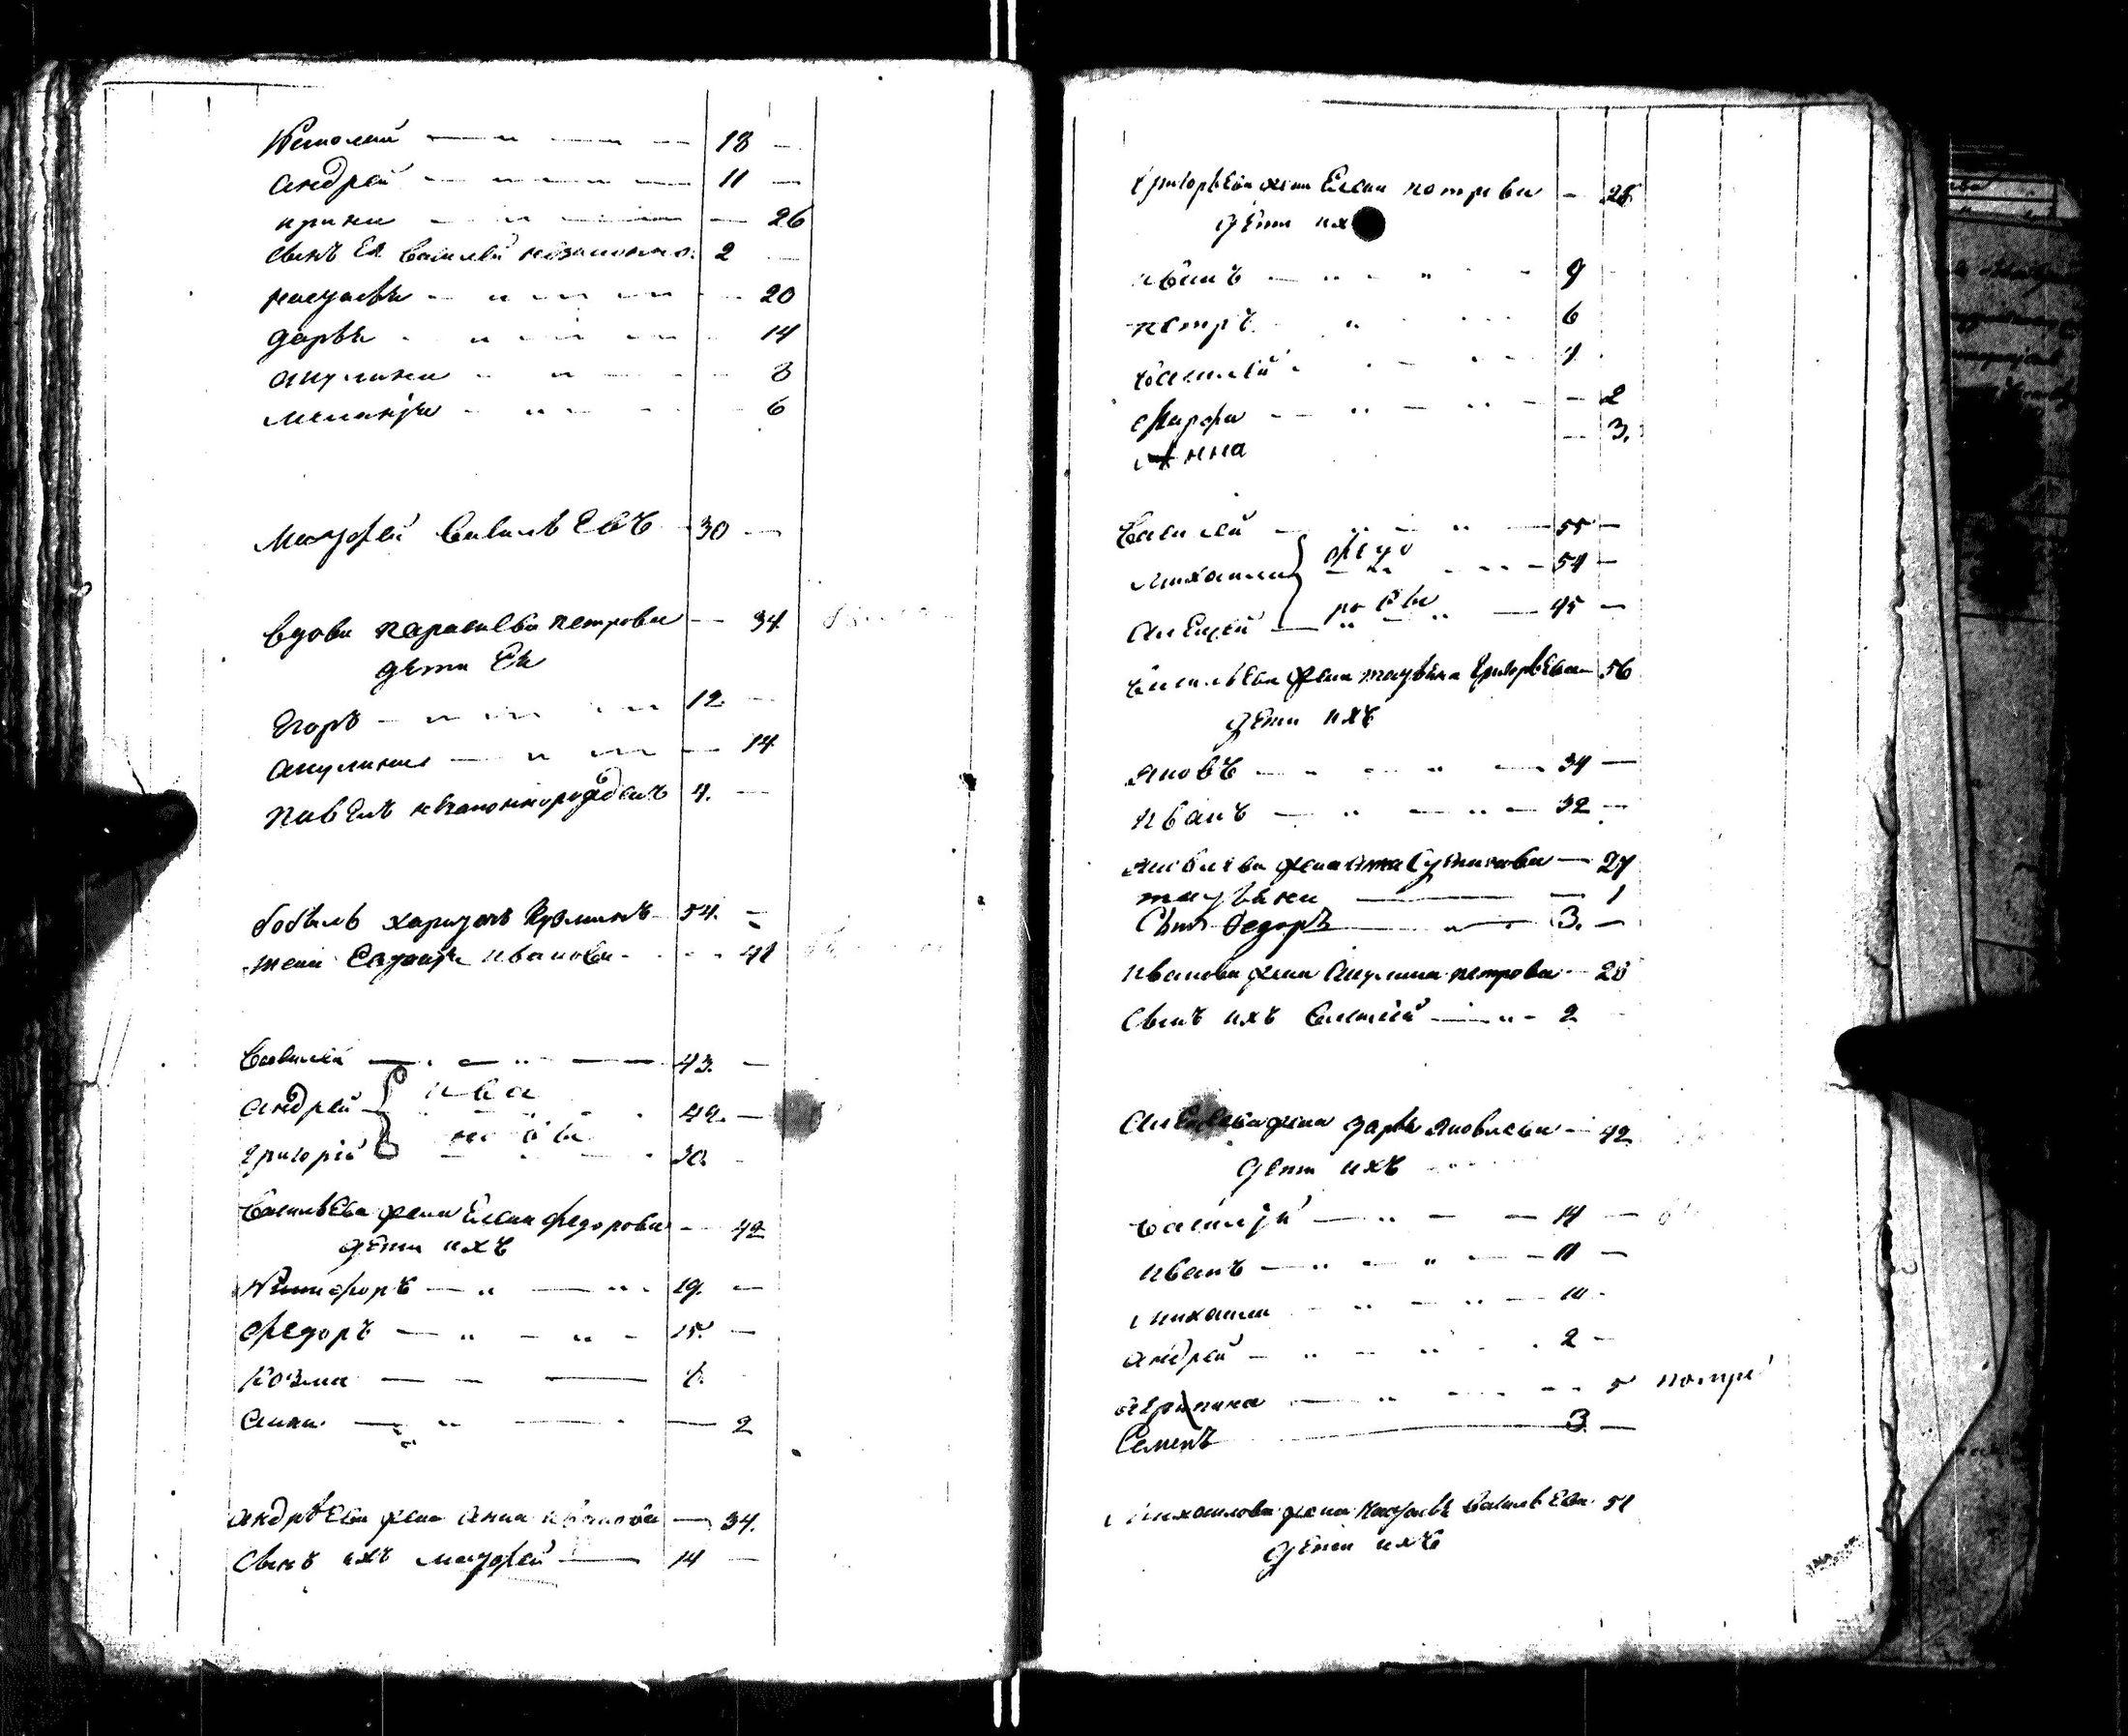 андрей 11
ирина 26
сынъ Ея василей 2
настасья 20
дарья 14
акулина 8
меланья 6
Матфей Васильевъ 30
вдова парасковья петрова 34
дети Ея
Егоръ 12
акулина 14
павелъ незаконнорожденъ 4
бобыль харитонъ кузминъ 54
жена Евдокия иванова 41
Василей 43
андрей ива 42
григорий новы 30
Васильева жена Елена федорова 42
дети ихъ
Никифоръ 19
федоръ 15
козма
анна 2
андреева жена анна иванова 34
сынъ ихъ матфей 14
григорьева жена Елена петрова 28
дети ихъ
иванъ 9
петръ 6
василей 4
марфа 2
Анна 3
василей 55
михаила федо 54
алексей ровы 45
васильева жена татьяна григорьева 56
дети ихъ
яковъ 34
иванъ 32
яковлева жена 27
татьяна 1
Сынъ Федоръ 3
иванова жена акулина петрова 28
сынъ ихъ 2
алексеева жена дарья яковлева 42
дети ихъ
василий 14
иванъ 11
михаила
андрей 2
агрипина 5
Семенъ 3
михаилова жена настасья васильева 51
дети ихъ